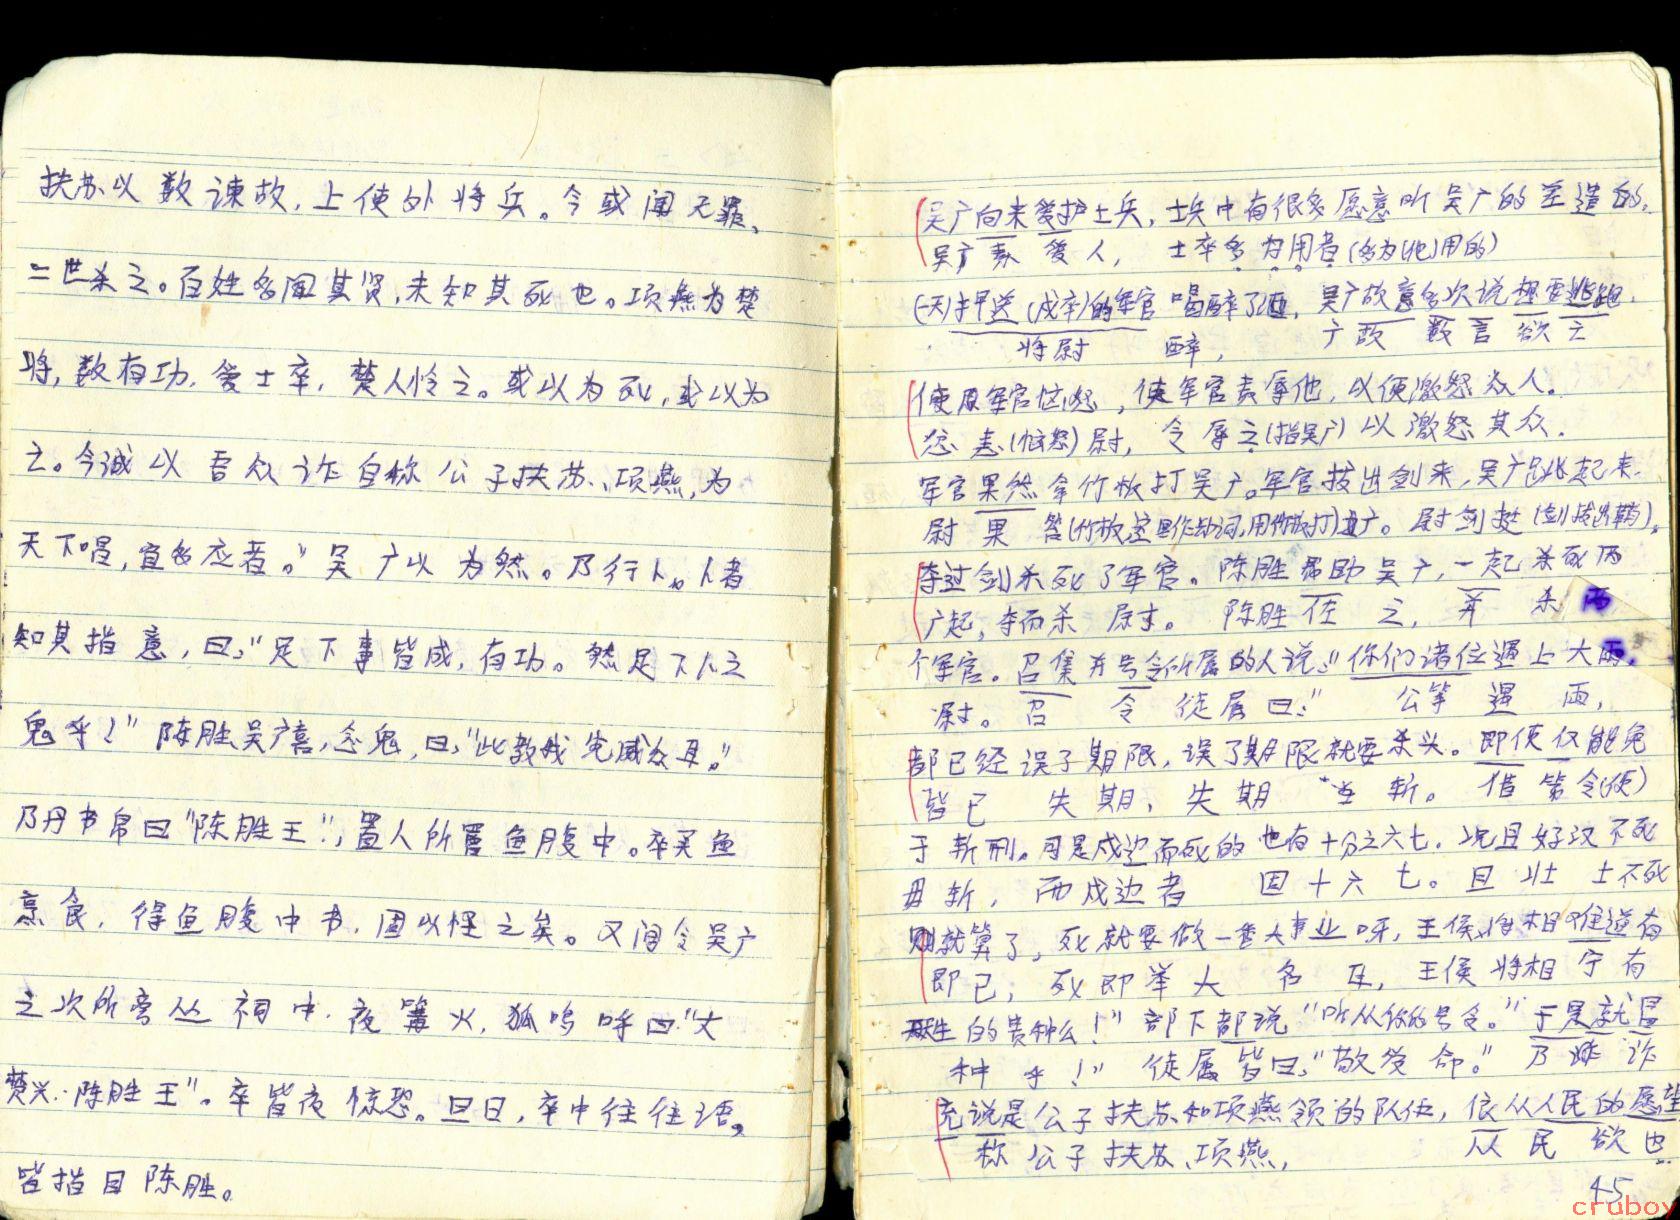 扶苏以数谏故，上使外将兵。今或闻无罪，
二世杀之。百姓多闻其贤，未知其死也。项燕为楚
将，数有功，爱士卒，楚人怜之。或以为死，或以为
亡。今诚以吾众诈自称公子扶苏、项燕，为
天下唱，宜多应者。”吴广以为然。乃行卜。卜者
知其指意，曰：“足下事皆成，有功。然足下卜之
鬼乎！”陈胜吴广喜，念鬼，曰：“此教我先威众耳。”
乃丹书帛曰“陈胜王”，置人所罾鱼腹中。卒买鱼
烹食，得鱼腹中书，固以怪之矣。又间令吴广
之次所旁丛祠中，夜篝火，狐鸣呼曰：“大
楚兴，陈胜王”。卒皆夜惊恐。旦日，卒中往往语，
皆指目陈胜。
吴广向来爱护士兵，士兵中有很多愿意听吴广的差遣的。
吴广素爱人，士卒多为用者(多为(他)用的)
(一天)押送(戍卒)的军官喝醉了酒，吴广故意多次说想要逃跑，
将尉醉，广故数言欲亡
使原军官恼怒，使军官责辱他，以便激怒众人。
忿恚(恼怒)尉，令辱之(指吴广)以激怒其众。
军官果然拿竹板打吴广。军官拔出剑来，吴广跳起来，
尉果笞(竹板，这里作动词，用竹板打)广。尉剑挺(剑拔出鞘)。
夺过剑杀死了军官。陈胜帮助吴广，一起杀死两
广起，夺而杀尉。陈胜佐之，并杀两
个军官。召集并号令所属的人说：“你们诸位遇上大雨，
尉。召令徒属曰：“公等遇雨，
都已经误了期限，误了期限就要杀头。即使仅能免
皆已失期，失期当斩。借第令(使)
于斩刑。可是戍边而死的也有十分之六七。况且好汉不死
毋斩，而戍边者固十六七。且壮士不死
则就算了，死就要做一番大事业呀，王侯将相难道有
即已，死即举大名耳，王侯将相宁有
天生的贵种么！”部下都说“听从你的号令。”于是就冒
种乎！”徒属皆曰：“敬受命。”乃诈
充说是公子扶苏和项燕领的队伍，依从人民的愿望
称公子扶苏、项燕，从民欲也
45
cruboy